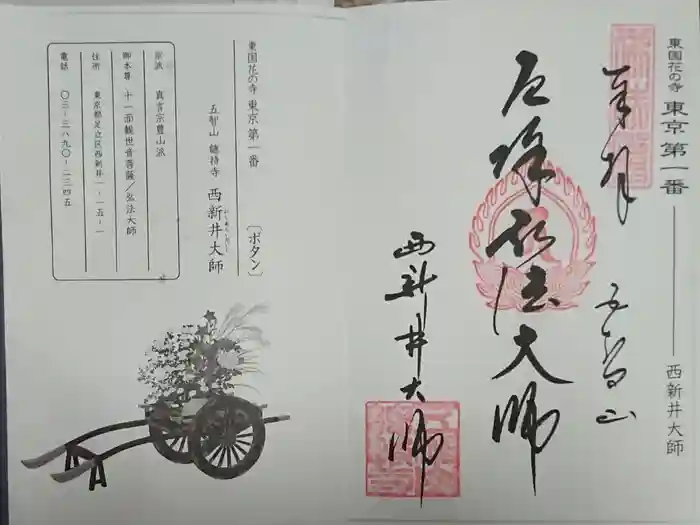 東国花の寺 東京 第一番 ―― 西新井大師
奉拝
五智山
厄除弘法大師
西新井大師
東国花の寺 東京 第一番 〔ボタン〕
五智山 總持寺 西新井大師
にしあらいだいし
宗派 真言宗豊山派
御本尊 十一面観世音菩薩/弘法大師
住所 東京都足立区西新井一-一五-一
電話 〇三-三八九〇-二三四五